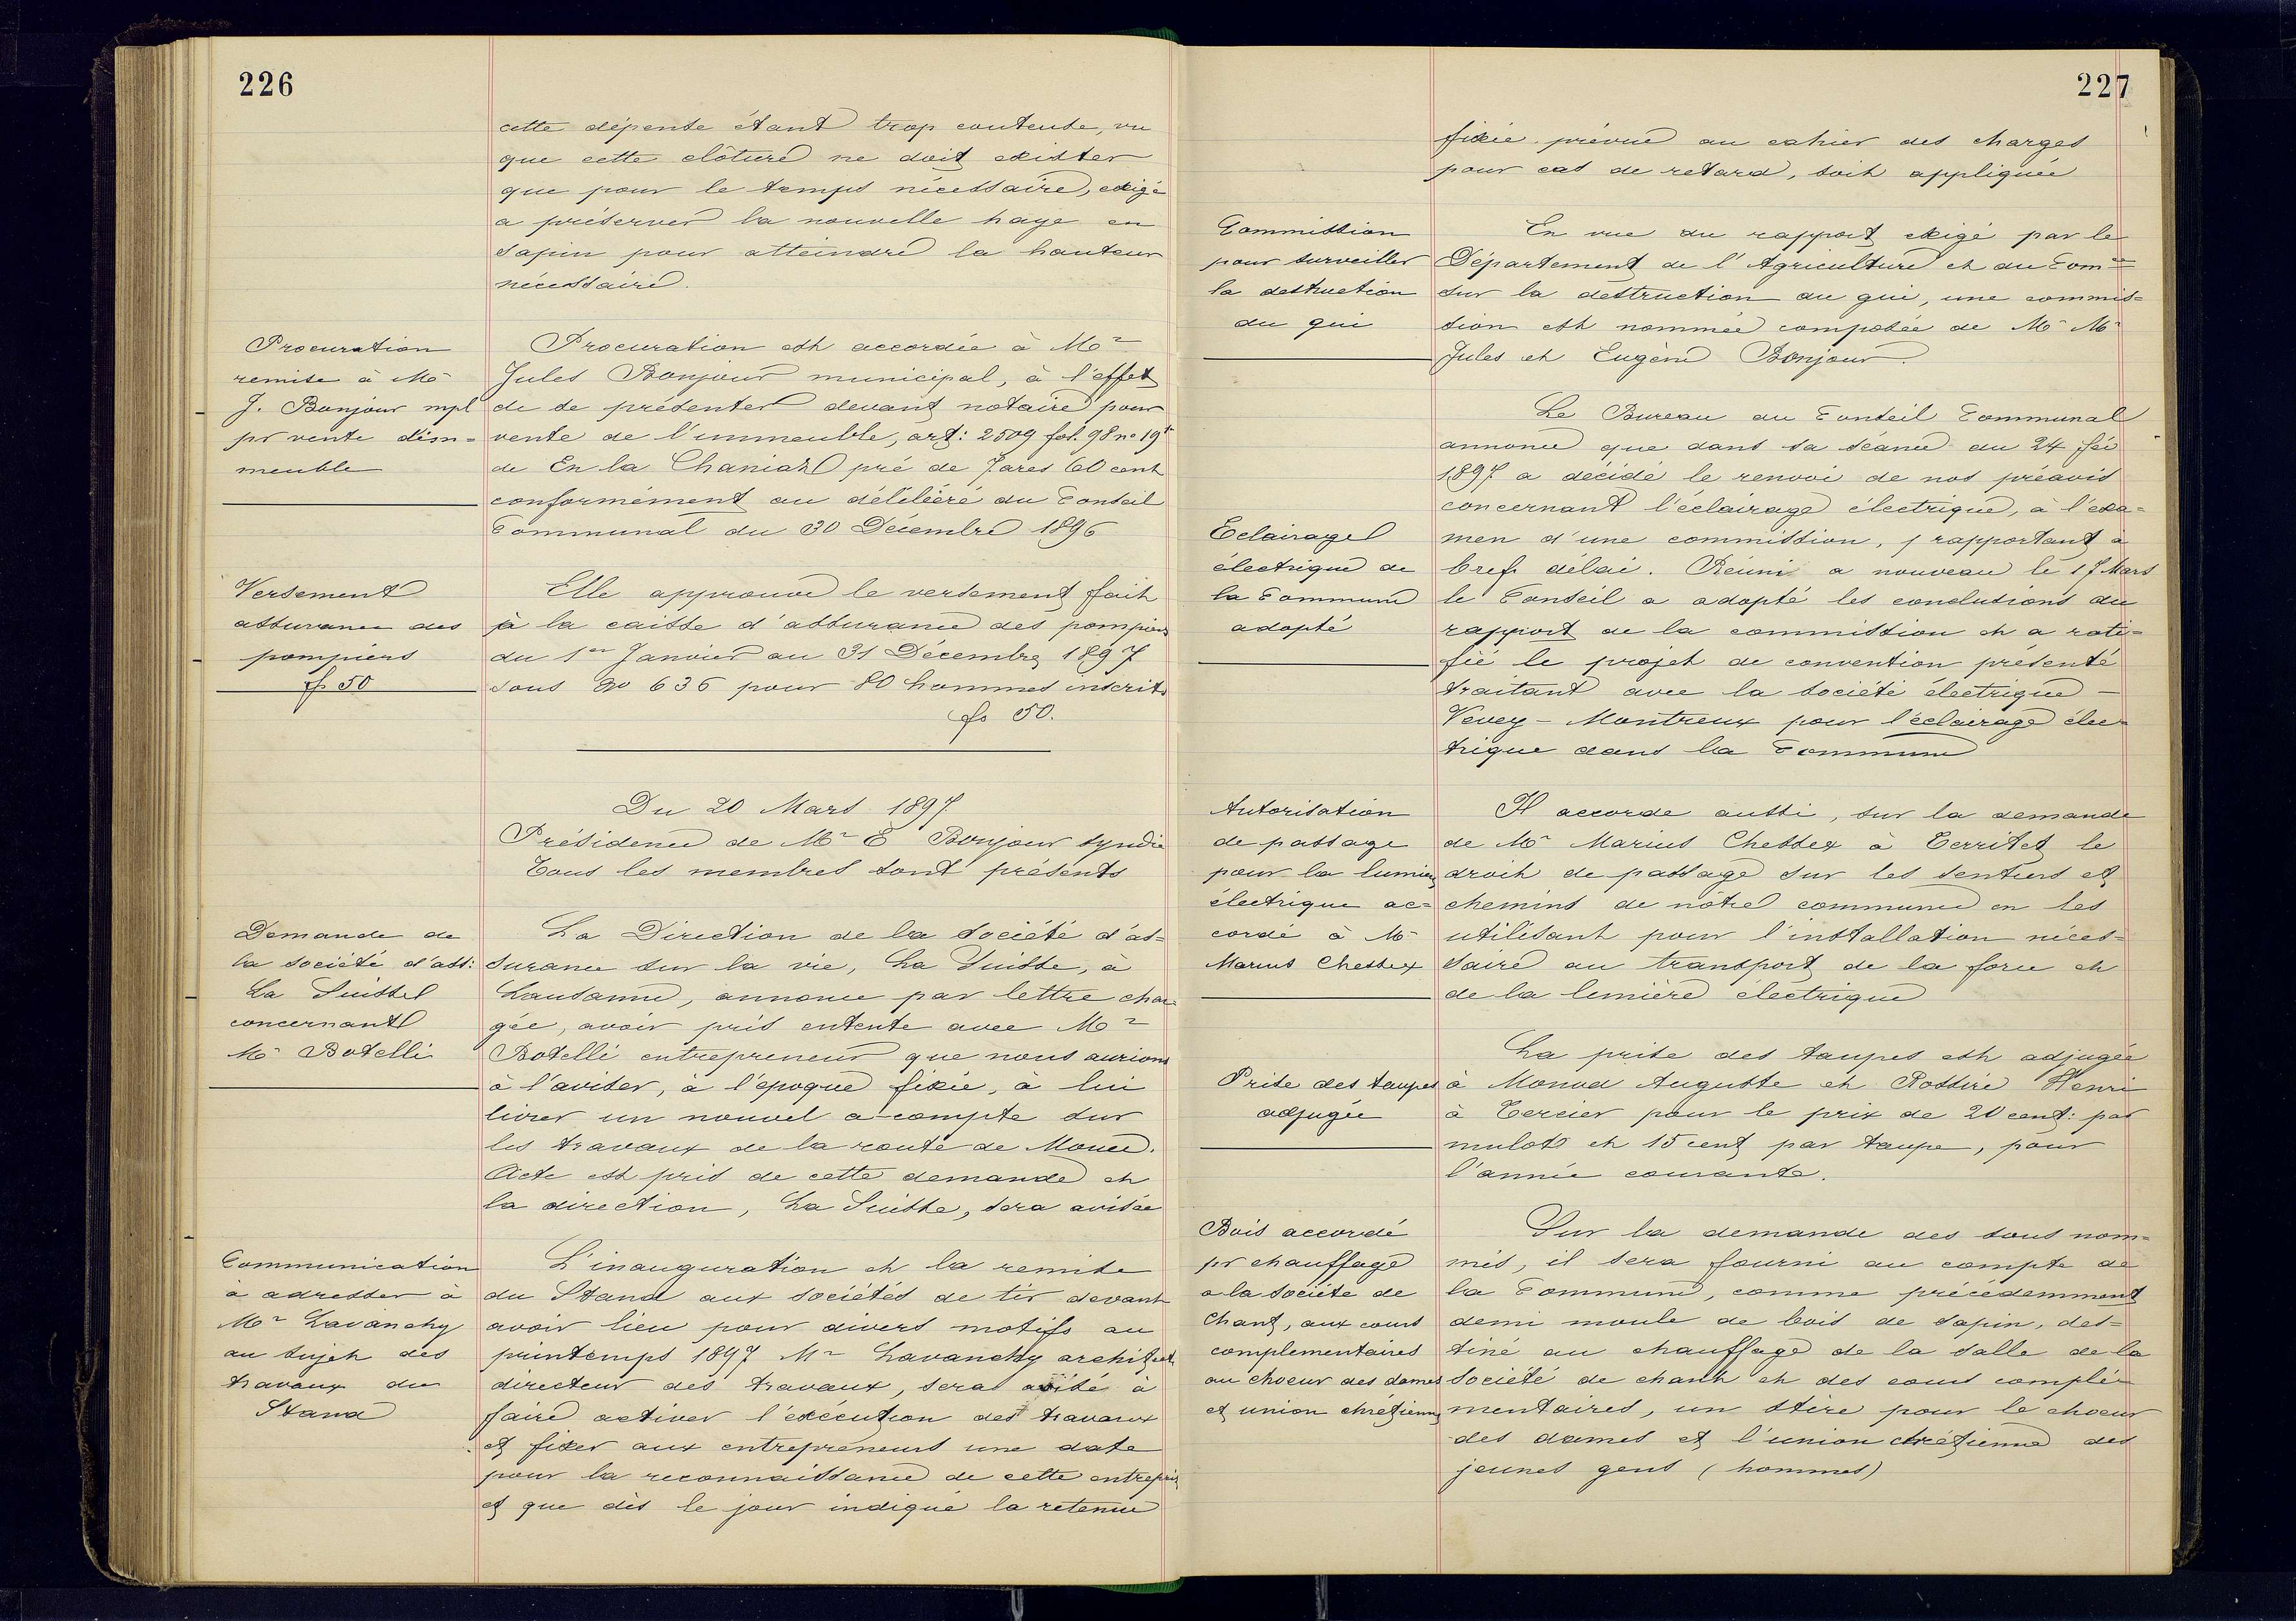 226
cette dépense étant trop couteuse, vu
que cette clôture ne doit exister
que pour le temps nécessaire, exigé
a préserver la nouvelle haye en
sapin pour atteindre la hauteur
nécessaire.
Procuration
remise à Mr
J. Bonjour mpl
pr vente d'im=
meuble
Procuration est accordée à Mr
Jules Bonjour municipal, à l'effet
de se présenter devant notaire pour
vente de l'immeuble, art: 2509 fol. 98 no 19
de En la Chaniaz pré de 7 ares 60 cent
conformément au délibéré du Conseil
Communal du 30 Décembre 1896
Versement
assurance des
pompiers
fr 50
Elle approuve le versement fait
à la caisse d'assurance des pompiers
du 1er Janvier au 31 Décembre 1897
sous No 636 pour 80 hommes inscrits
frs 50.
Du 20 Mars 1897
Présidence de Mr E Bonjour syndic
Tous les membres sont présents
Demande de
la société d'ass:
La Suisse
concernant
Mr Botelli
La Direction de la société d'as=
surance sur la vie, La Suisse, à
Lausanne, annonce par lettre char
gée, avoir pris entente avec Mr
Botelli entrepreneur que nous aurions
à l'aviser, à l'époque fixée, à lui
livrer un nouvel a-compte sur
les travaux de la route de
Acte est pris de cette demande et
la direction, La Suisse, sera avisée
Communication
à adresser à
Mr Lavanchy
au sujet des
travaux du
Stand
L'inauguration et la remise
du Stand aux sociétés de tir devant
avoir lieu pour divers motifs au
printemps 1897 Mr Lavanchy architect
directeur des travaux, sera avisé à
faire activer l'exécution des travaux
et fixer aux entrepreneurs une date
pour la reconnaissance de cette entrepris
et que dès le jour indiqué la retenue
227
fixée prévue au cahier des charges
pour cas de retard, soit appliquée
Commission
pour surveiller
la destruction
du gui
En vue du rapport exigé par le
Département de l'Agriculture et du Comce
sur la destruction du gui, une commis=
sion est nommée composée de Mr Mr
Jules et Eugène Bonjour.
Le Bureau du Conseil Communal
annonce que dans sa séance du 24 fév
1897 a décidé le renvoi de nos préavis
concernant l'éclairage électrique, à l'exa=
men d'une commission, rapportant à
bref délai. Réuni a nouveau le 17 Mars
le Conseil a adopté les conclusions du
rapport de la commission et a rati=
fié le projet de convention présenté
traitant avec la société électrique -
Vevey - Montreux pour l'éclairage élec=
trique dans la Commune
Eclairage
électrique de
la Commune
adopté
Autorisation
de passage
pour la lumière
électrique ac=
cordé à Mr
Marius Chessex
Il accorde aussi, sur la demande
de Mr Marius Chessex à Territet le
droit de passage sur les sentiers et
chemins de nôtre commune en les
utilisant pour l'installation néces=
saire au transport de la force et
de la lumière électrique
Prise des taupes
adjugée
La prise des taupes est adjugée
à Monod Auguste et Rossire Henri
à Tercier pour le prix de 20 cent: par
mulots et 15 cent par taupe, pour
l'année courante.
Bois accordé
pr chauffage
a la société de
Chant, aux cours
complementaires
au choeur des dames
et union chrétienne
Sur la demande des sous nom=
més, il sera fourni au compte de
la Commune, comme précédemment
demi moule de bois de sapin, des=
tiné au chauffage de la salle de la
société de chant et des cours complé=
mentaires, un stère pour le choeur
des dames et l'union chrétienne des
jeunes gens (hommes)